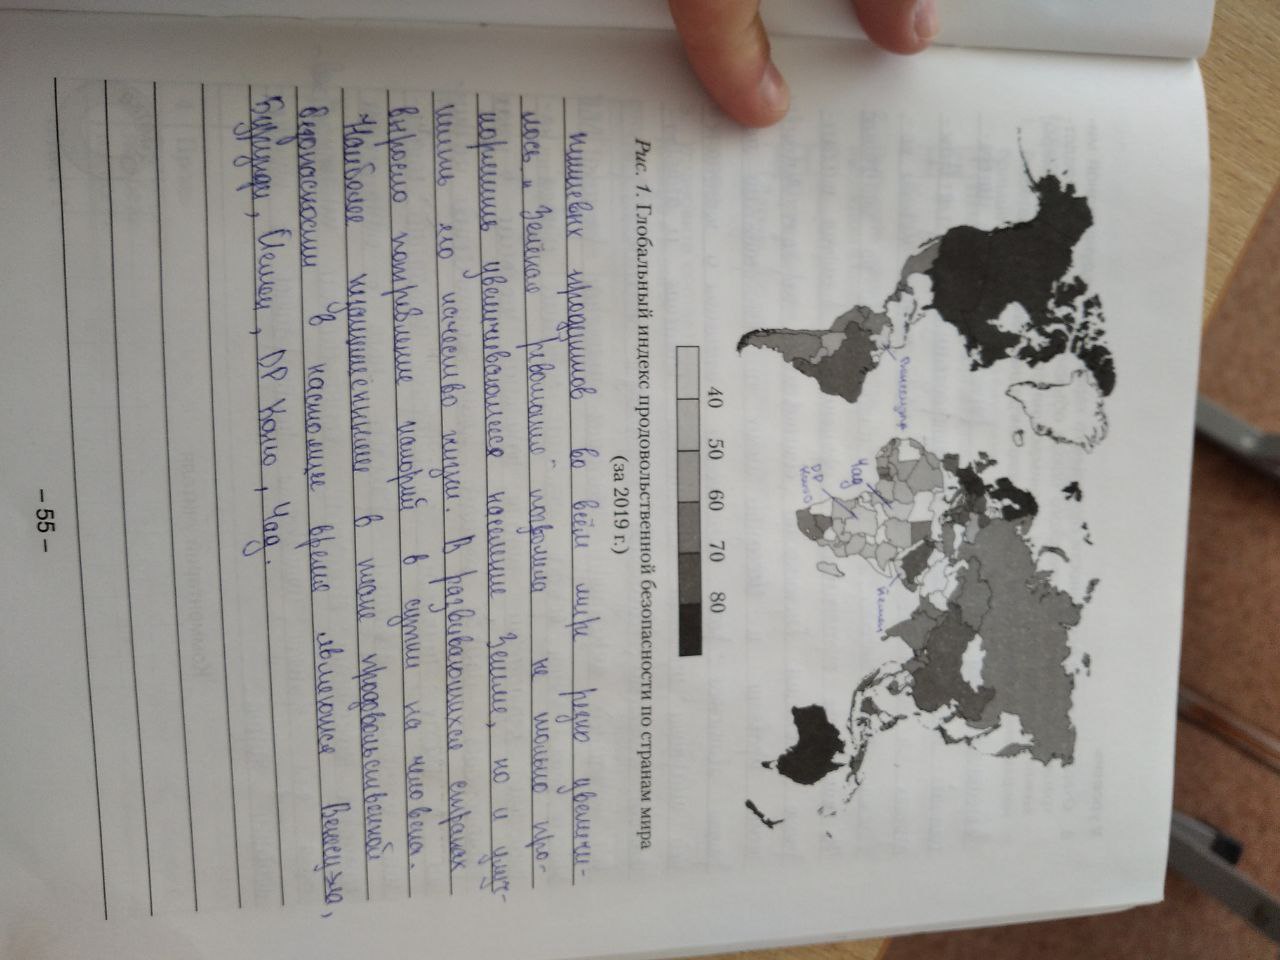 Венесуэла
Чад
ДР
Конго
Йемен
40 50 60 70 80
Рис. 1. Глобальный индекс продовольственной безопасности по странам мира
(за 2019 г.)
пищевых продуктов во всём мире резко увеличи-
лось. „Зелёная революция" позволила не только про-
кормить увеличивающееся население Земли, но и улуч-
шить его качество жизни. В развивающихся странах
выросло потребление калорий в сутки на человека.
Наиболее незащищённые в плане продовольственной
безопасности в настоящее время являются Венесуэла,
Бурунди, Йемен, ДР Конго, Чад.
– 55 –